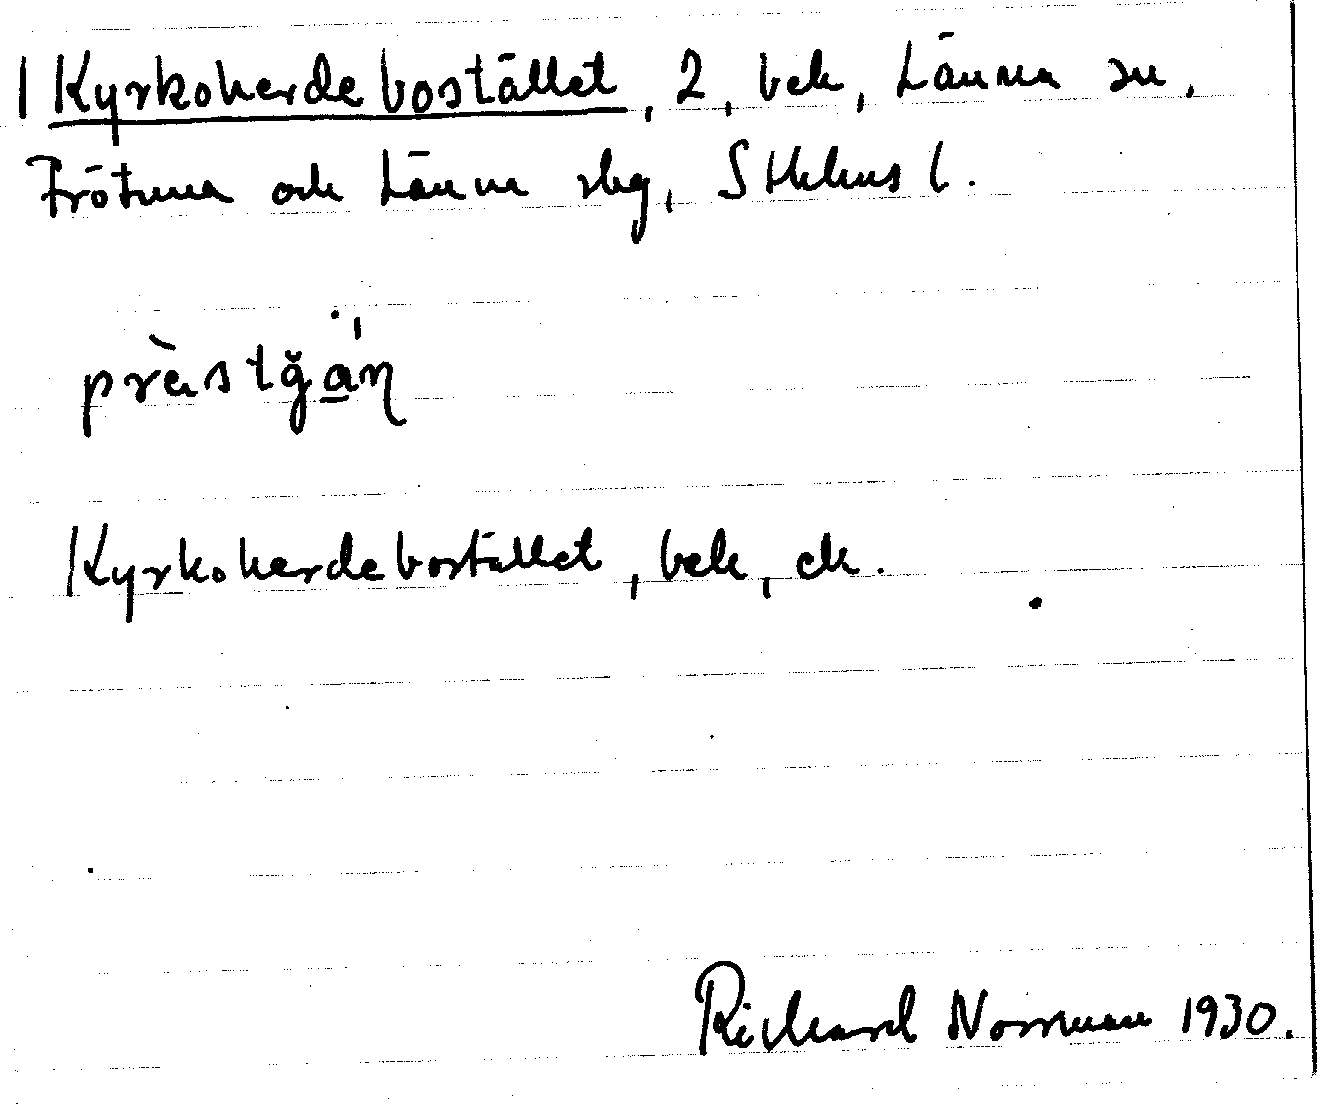 Kyrkoherdebostället, 2, bek, Länna sn,
Frötuna och Länna skg, Sthlms l.
prästgǻn
Kyrkoherdebostället, bek, ek.
Richard Norrman 1930.